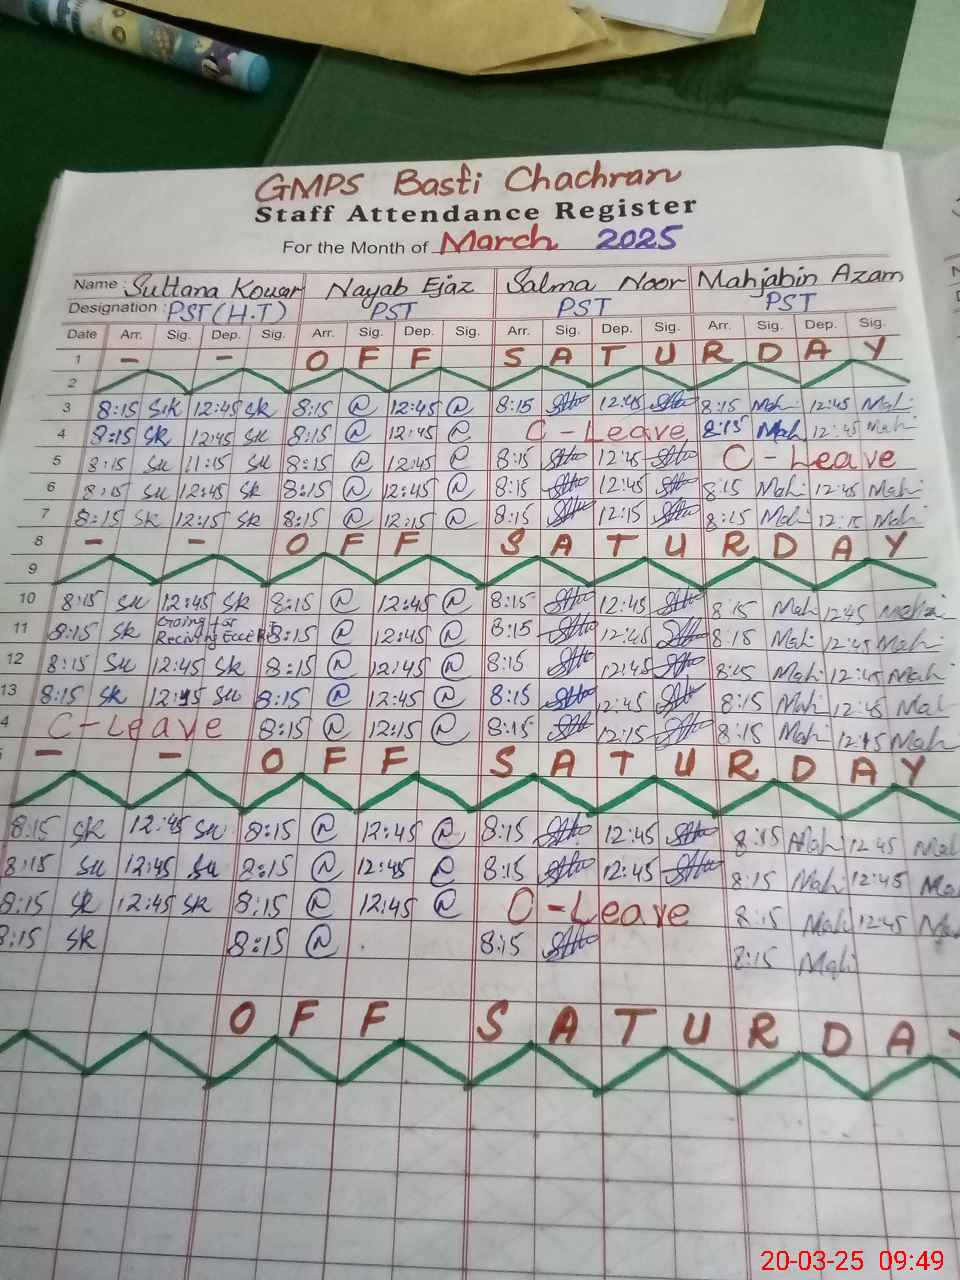 GMPS Basti Chachran
Staff Attendance Register
For the Month of March 2025
Name : Sultana Kousar Nayab Ejaz Salma Noor Mahjabin Azam
Designation : PST (H.T) PST PST PST
Date Arr. Sig. Dep. Sig. Arr. Sig. Dep. Sig. Arr. Sig. Dep. Sig. Arr. Sig. Dep. Sig.
1 - - OFF SATURDAY
2
3 8:15 SK 12:45 SK 8:15 12:45 8:15 12:45 8:15 Mah 12:45 Mah
4 8:15 SK 12:45 SK 8:15 12:45 C-Leave 8:15 Mah 12:45 Mah
5 8:15 SK 11:15 SK 8:15 12:45 8:15 12:45 C-Leave
6 8:15 SK 12:45 SK 8:15 12:45 8:15 12:45 8:15 Mah 12:45 Mah
7 8:15 SK 12:15 SK 8:15 12:15 8:15 12:15 8:15 Mah 12:15 Mah
8 - - OFF SATURDAY
9
10 8:15 SK 12:45 SK 8:15 12:45 8:15 12:45 8:15 Mah 12:45
11 8:15 SK Going for 8:15 12:45 8:15 12:45 8:15 Mah 12:45 Mah
12 8:15 SK 12:45 SK 8:15 12:45 8:15 12:45 8:15 Mah 12:45 Mah
13 8:15 SK 12:45 SK 8:15 12:45 8:15 12:45 8:15 Mah 12:45 Mah
4 C-Leave 8:15 12:15 8:15 12:15 8:15 Mah 12:15 Mah
- - OFF SATURDAY
8:15 SK 12:45 SK 8:15 12:45 8:15 12:45 8:15 Mah 12:45 Mah
8:15 SK 12:45 SK 8:15 12:45 8:15 12:45 8:15 Mah 12:45 Ma
8:15 SK 12:45 SK 8:15 12:45 C-Leave 8:15 Mah 12:45 Ma
8:15 SK 8:15 8:15 8:15 Mah
OFF SATURDAY
20-03-25 09:49